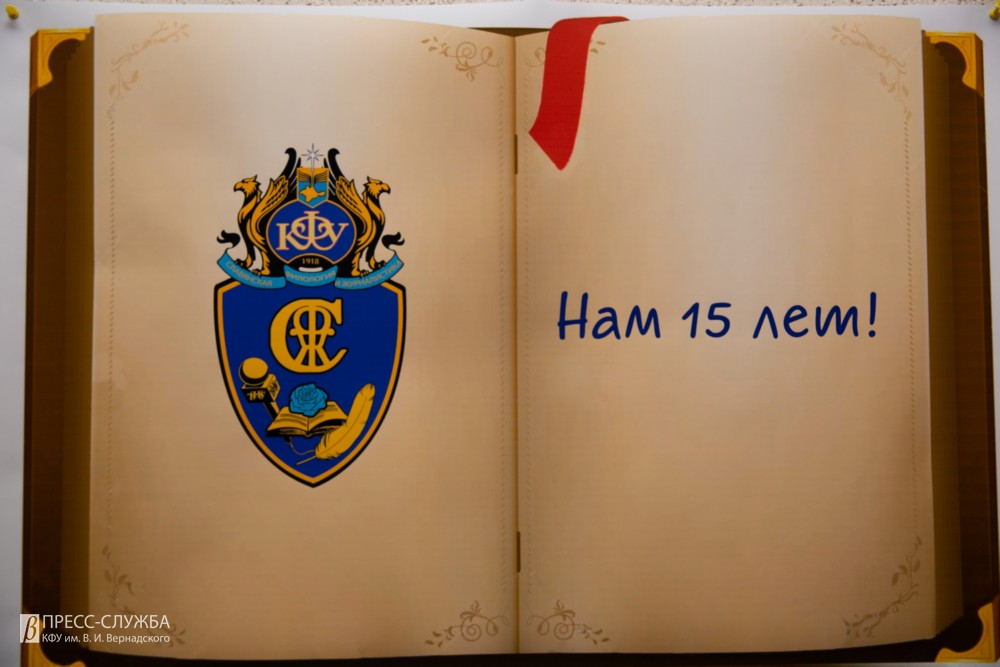 КФУ
1918
СЛАВЯНСКАЯ ФИЛОЛОГИЯ И ЖУРНАЛИСТИКА
Нам 15 лет!
ПРЕСС-СЛУЖБА
КФУ им. В. И. Вернадского